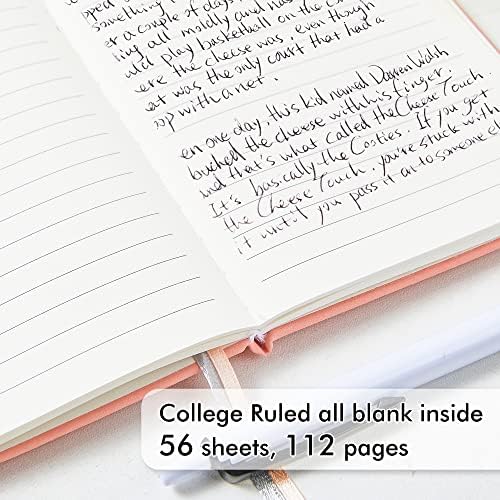 pped
something
er a couple of days
ing all moldly and nas
uld play basketball on the co
ere the cheese was, even though
at was the only court that had a
op with a net.
en one day, this kid named Darren Walsh
touched the cheese with his finger
and that's what called the Cheese Touch.
It's basically the Cooties. If you get
the Cheese Touch, you're stuck with
it until you pass it on to someone e
College Ruled all blank inside
56 sheets, 112 pages